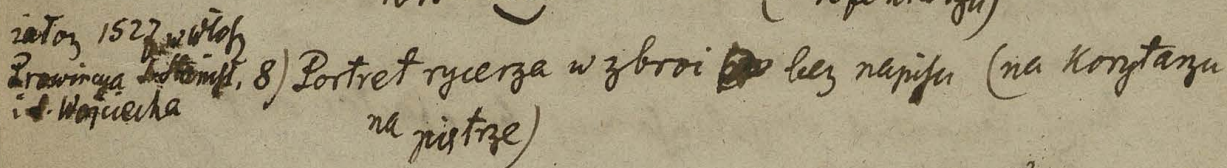 założ 1527 w włosz
Prowincya S. Stanisł.
i S. Wojciecha
8) Portret rycerza w zbroi bez napisu (na Korytarzu
na piętrze)